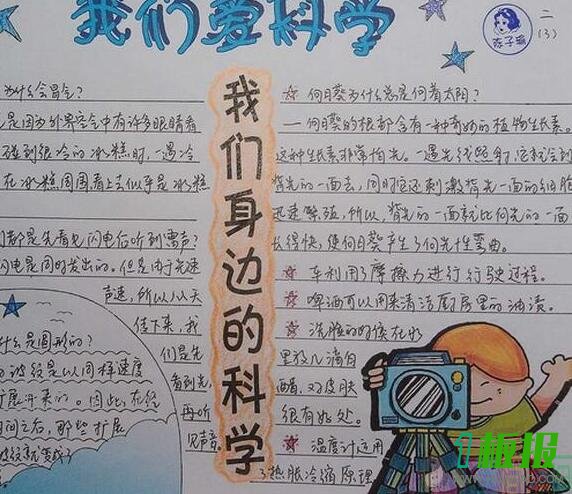 我们爱科学
陈子瑜
二
(3)
我们身边的科学
为什么会冒气?
是因为外界空气中有许多眼睛看
碰到很冷的冰糕时,一遇冷
在冰糕周围,看上去似乎是冰糕
们都是先看见闪电后听到雷声?
闪电是同时发出的。但是由于光速
声速,所以从天
传下来,我
们是先
看到光,
再听
见声音。
什么是圆形的?
的波纹是以同样速度
扩展开来的。因此,在经
时间之后,那些扩展
波纹就变成了
☆ 向日葵为什么总是向着太阳?
一向日葵的根都含有一种奇妙的植物生长素。
这种生长素非常怕光。一遇光线照射,它就会到
背光的一面去,同时它还刺激背光一面的细胞
迅速繁殖,所以,背光的一面就比向光的一面
长得快,使向日葵产生了向光性弯曲。
☆ 车利用了摩擦力进行行驶过程。
☆ 啤酒可以用来清洁厨房里的油渍。
☆ 洗脸的时候在水
里放几滴白
醋,对皮肤
很有好处。
☆ 温度计运用
了热胀冷缩原理。
板报